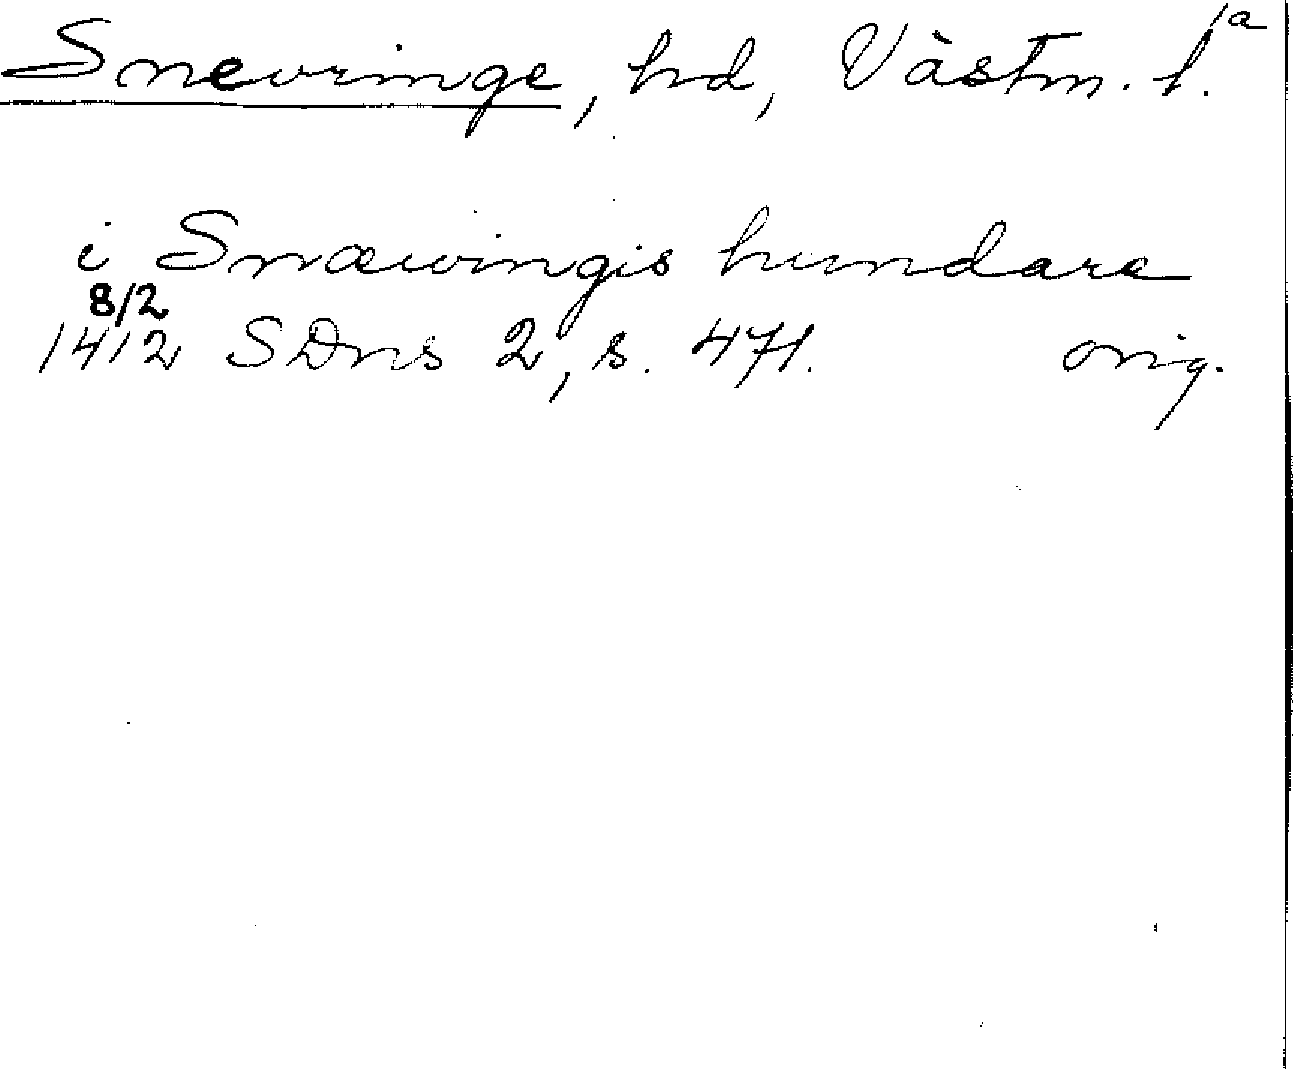 1a
Snevringe, hd, Västm. l.
i Snæwingis hundare
8/2
1412 SDns 2, s. 471. orig.